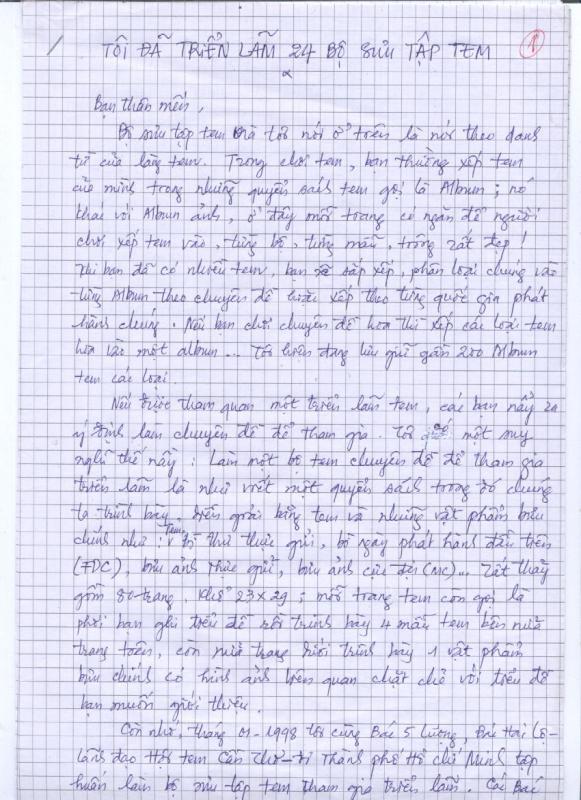 TÔI ĐÃ TRIỂN LÃM 24 BỘ SƯU TẬP TEM
1
Bạn thân mến,
Bộ sưu tập tem mà tôi nói ở trên là nói theo danh
từ của làng tem. Trong chơi tem, bạn thường xếp tem
của mình trong những quyển sách tem gọi là Album; nó
khác với Album ảnh, ở đây mỗi trang có ngăn để người
chơi xếp tem vào, từng bộ, từng mẫu, trông rất đẹp!
Khi bạn đã có nhiều tem, bạn sẽ sắp xếp, phân loại chúng vào
từng Album theo chuyên đề hoặc xếp theo từng quốc gia phát
hành chúng. Nếu bạn chơi chuyên đề hoa thì xếp các loại tem
hoa vào một album... Tôi hiện đang lưu giữ gần 200 Album
tem các loại.
Nếu được tham quan một triển lãm tem, các bạn nẩy ra
ý định làm chuyên đề để tham gia. Tôi có một suy
nghĩ thế này: Làm một bộ tem chuyên đề để tham gia
triển lãm là như viết một quyển sách trong đó chúng
ta trình bày, diễn giải bằng tem và những vật phẩm bưu
chính như: Tem, bì thư thực gửi, bì ngày phát hành đầu tiên
(FDC), bưu ảnh thực gửi, bưu ảnh cực đại (MC)... Tất thảy
gồm 80 trang, khổ 23x29; mỗi trang tem còn gọi là
phơi bạn ghi tiêu đề rồi trình bày 4 mẫu tem bên nửa
trang trên, còn nửa trang dưới trình bày 1 vật phẩm
bưu chính có hình ảnh liên quan chặt chẽ với tiêu đề
bạn muốn giới thiệu.
Còn nhớ, tháng 01-1998 tôi cùng Bác 5 Lương, Bác Hai Lộ-
lãnh đạo Hội tem Cần Thơ-đi Thành phố Hồ Chí Minh tập
huấn làm bộ sưu tập tem tham gia triển lãm. Các Bác